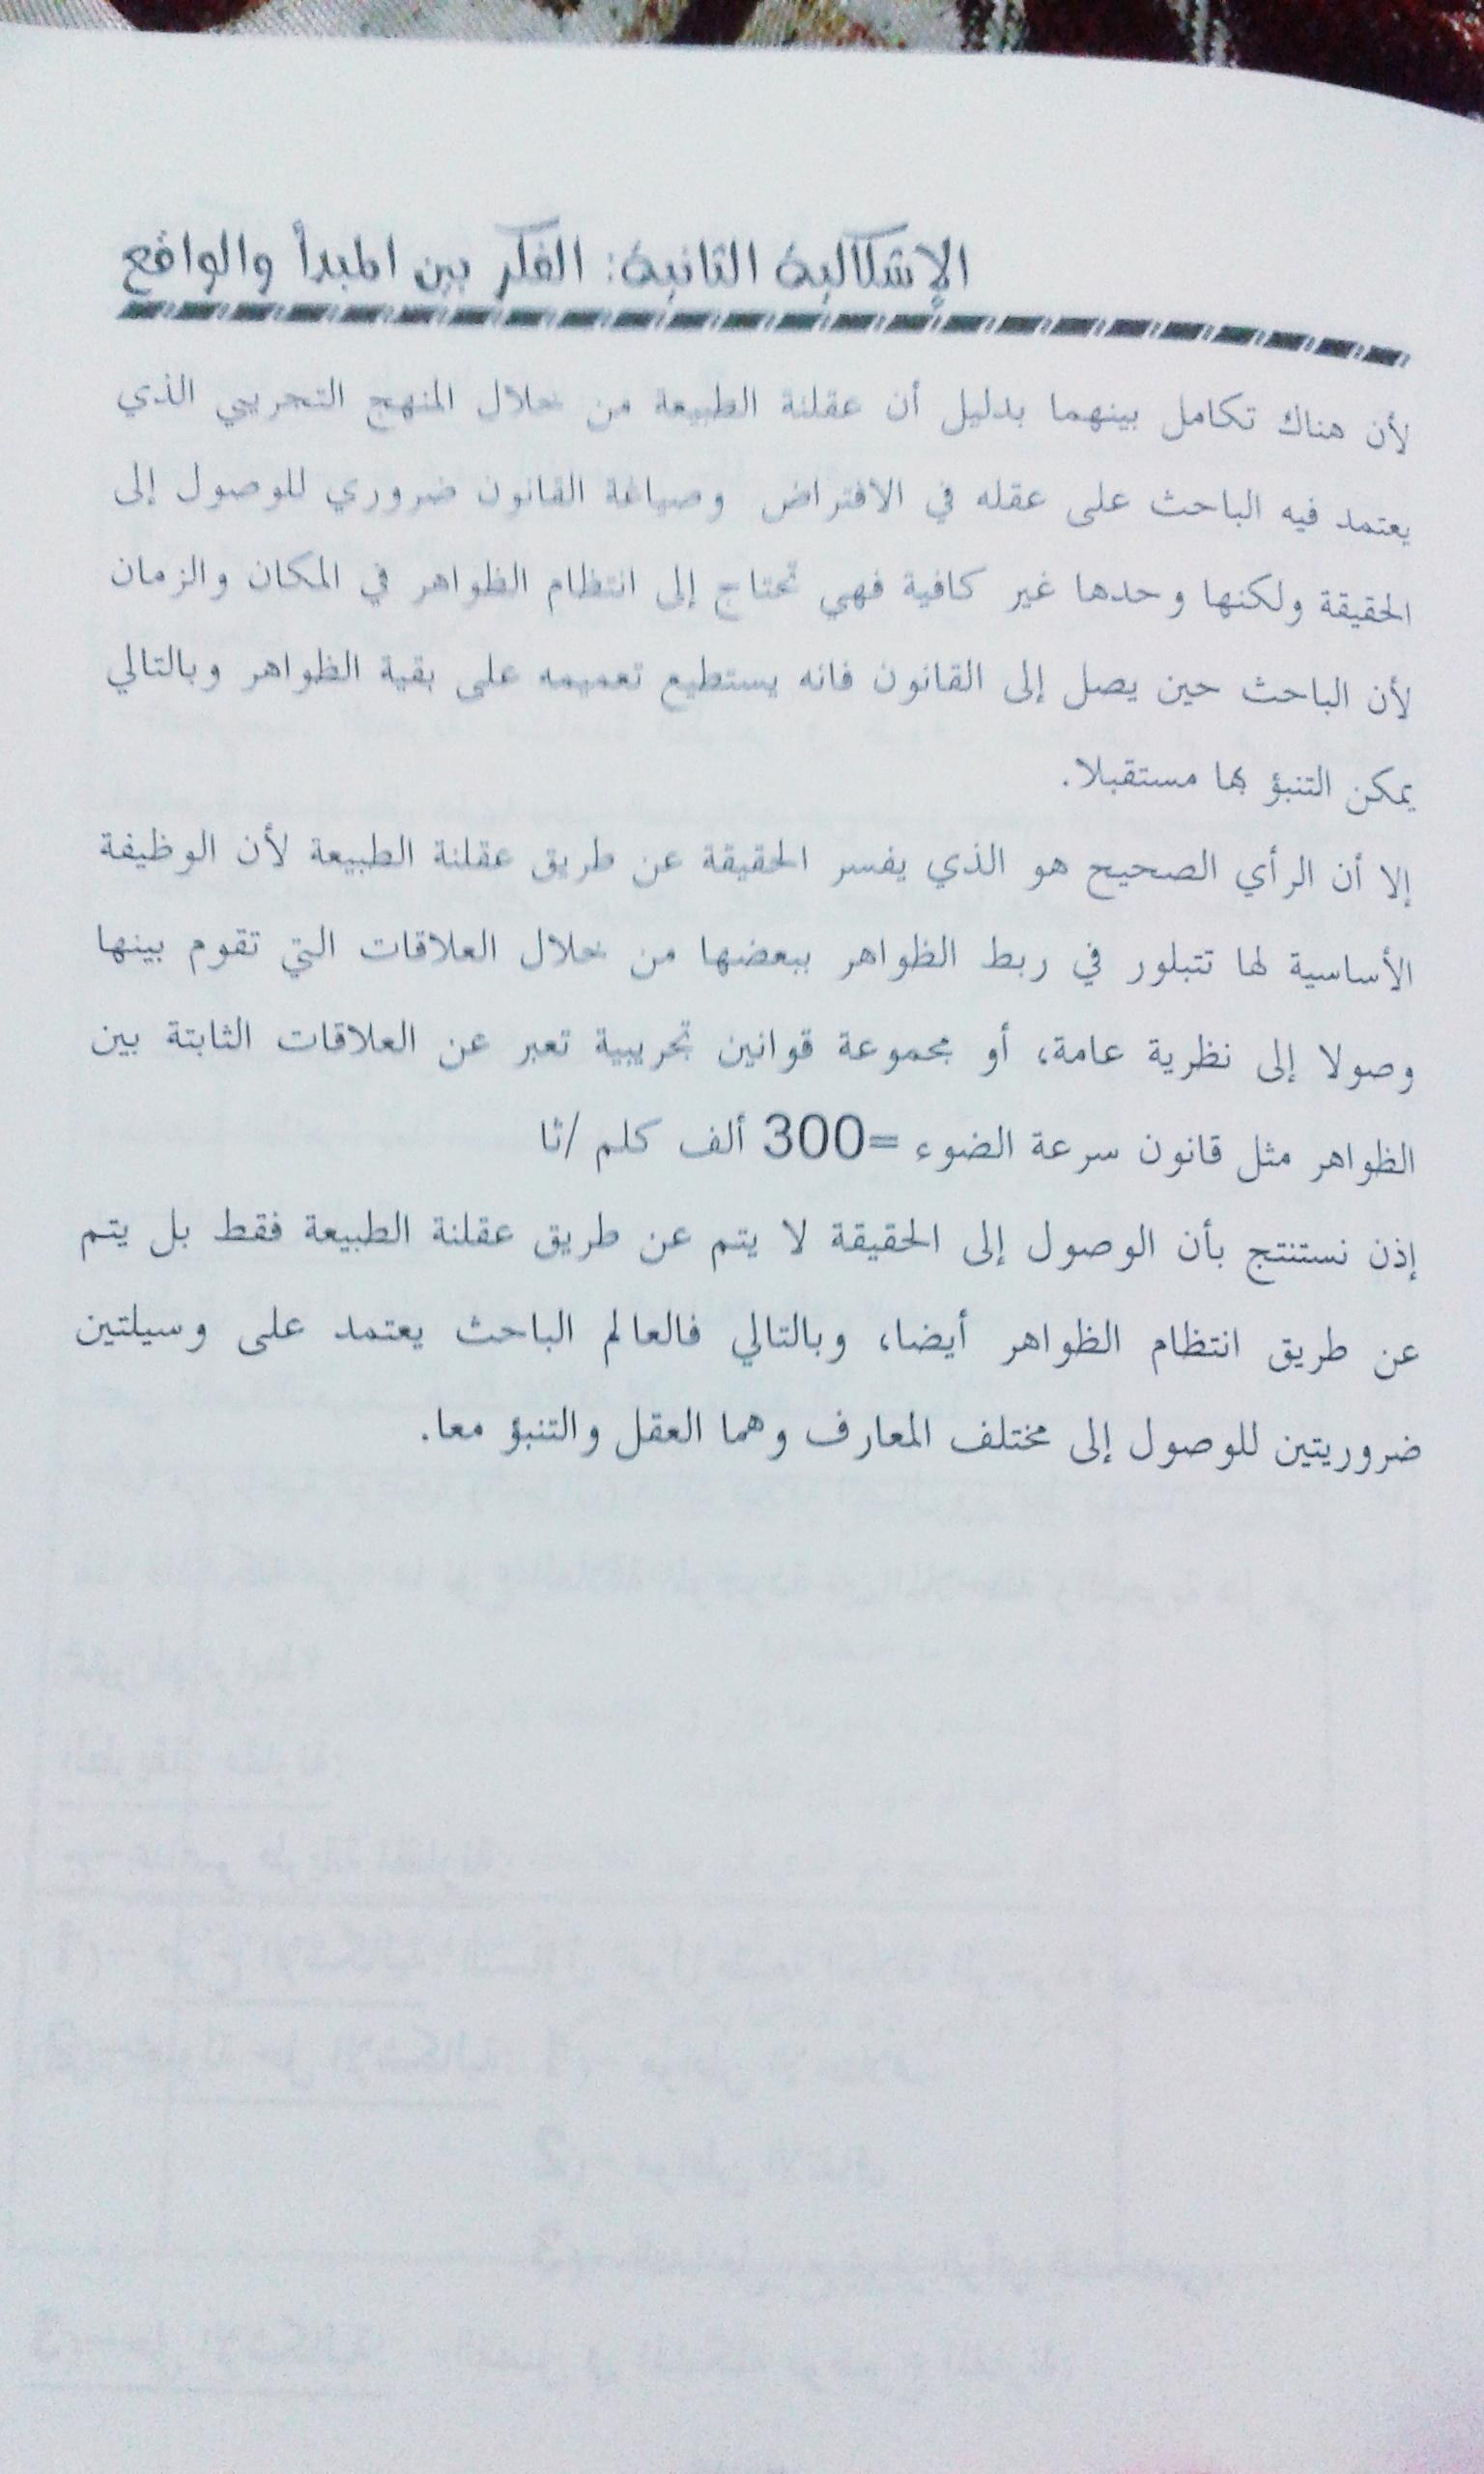 الإشكالية الثانية: الفكر بين المبدأ والواقع
لأن هناك تكامل بينهما بدليل أن عقلنة الطبيعة من خلال المنهج التجريبي الذي
يعتمد فيه الباحث على عقله في الافتراض وصياغة القانون ضروري للوصول إلى
الحقيقة ولكنها وحدها غير كافية فهي تحتاج إلى انتظام الظواهر في المكان والزمان
لأن الباحث حين يصل إلى القانون فانه يستطيع تعميمه على بقية الظواهر وبالتالي
يمكن التنبؤ بها مستقبلا.
إلا أن الرأي الصحيح هو الذي يفسر الحقيقة عن طريق عقلنة الطبيعة لأن الوظيفة
الأساسية لها تتبلور في ربط الظواهر ببعضها من خلال العلاقات التي تقوم بينها
وصولا إلى نظرية عامة، أو مجموعة قوانين تجريبية تعبر عن العلاقات الثابتة بين
الظواهر مثل قانون سرعة الضوء =300 ألف كلم /ثا
إذن نستنتج بأن الوصول إلى الحقيقة لا يتم عن طريق عقلنة الطبيعة فقط بل يتم
عن طريق انتظام الظواهر أيضا، وبالتالي فالعالم الباحث يعتمد على وسيلتين
ضروريتين للوصول إلى مختلف المعارف وهما العقل والتنبؤ معا.